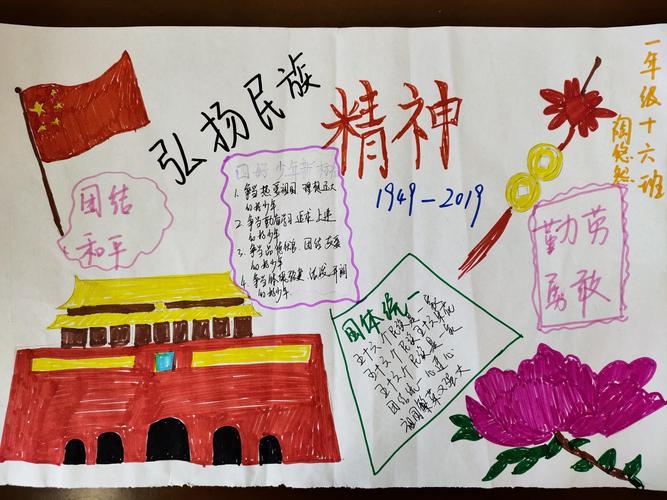 弘扬民族
精神
1949-2019
一年级十六班
陶悠然
团结
和平
四好少年新标
1. 争当热爱祖国 理想远大
的好少年
2. 争当勤奋学习 追求上进
的好少年
3. 争当品德优良 团结友爱
的好少年
4. 争当体魄强健 活泼开朗
的好少年.
团体统一
五十六个民族是一家
五十六个民族
五十六个民族是一家
团结统一
祖国繁荣又强大
勤劳
勇敢